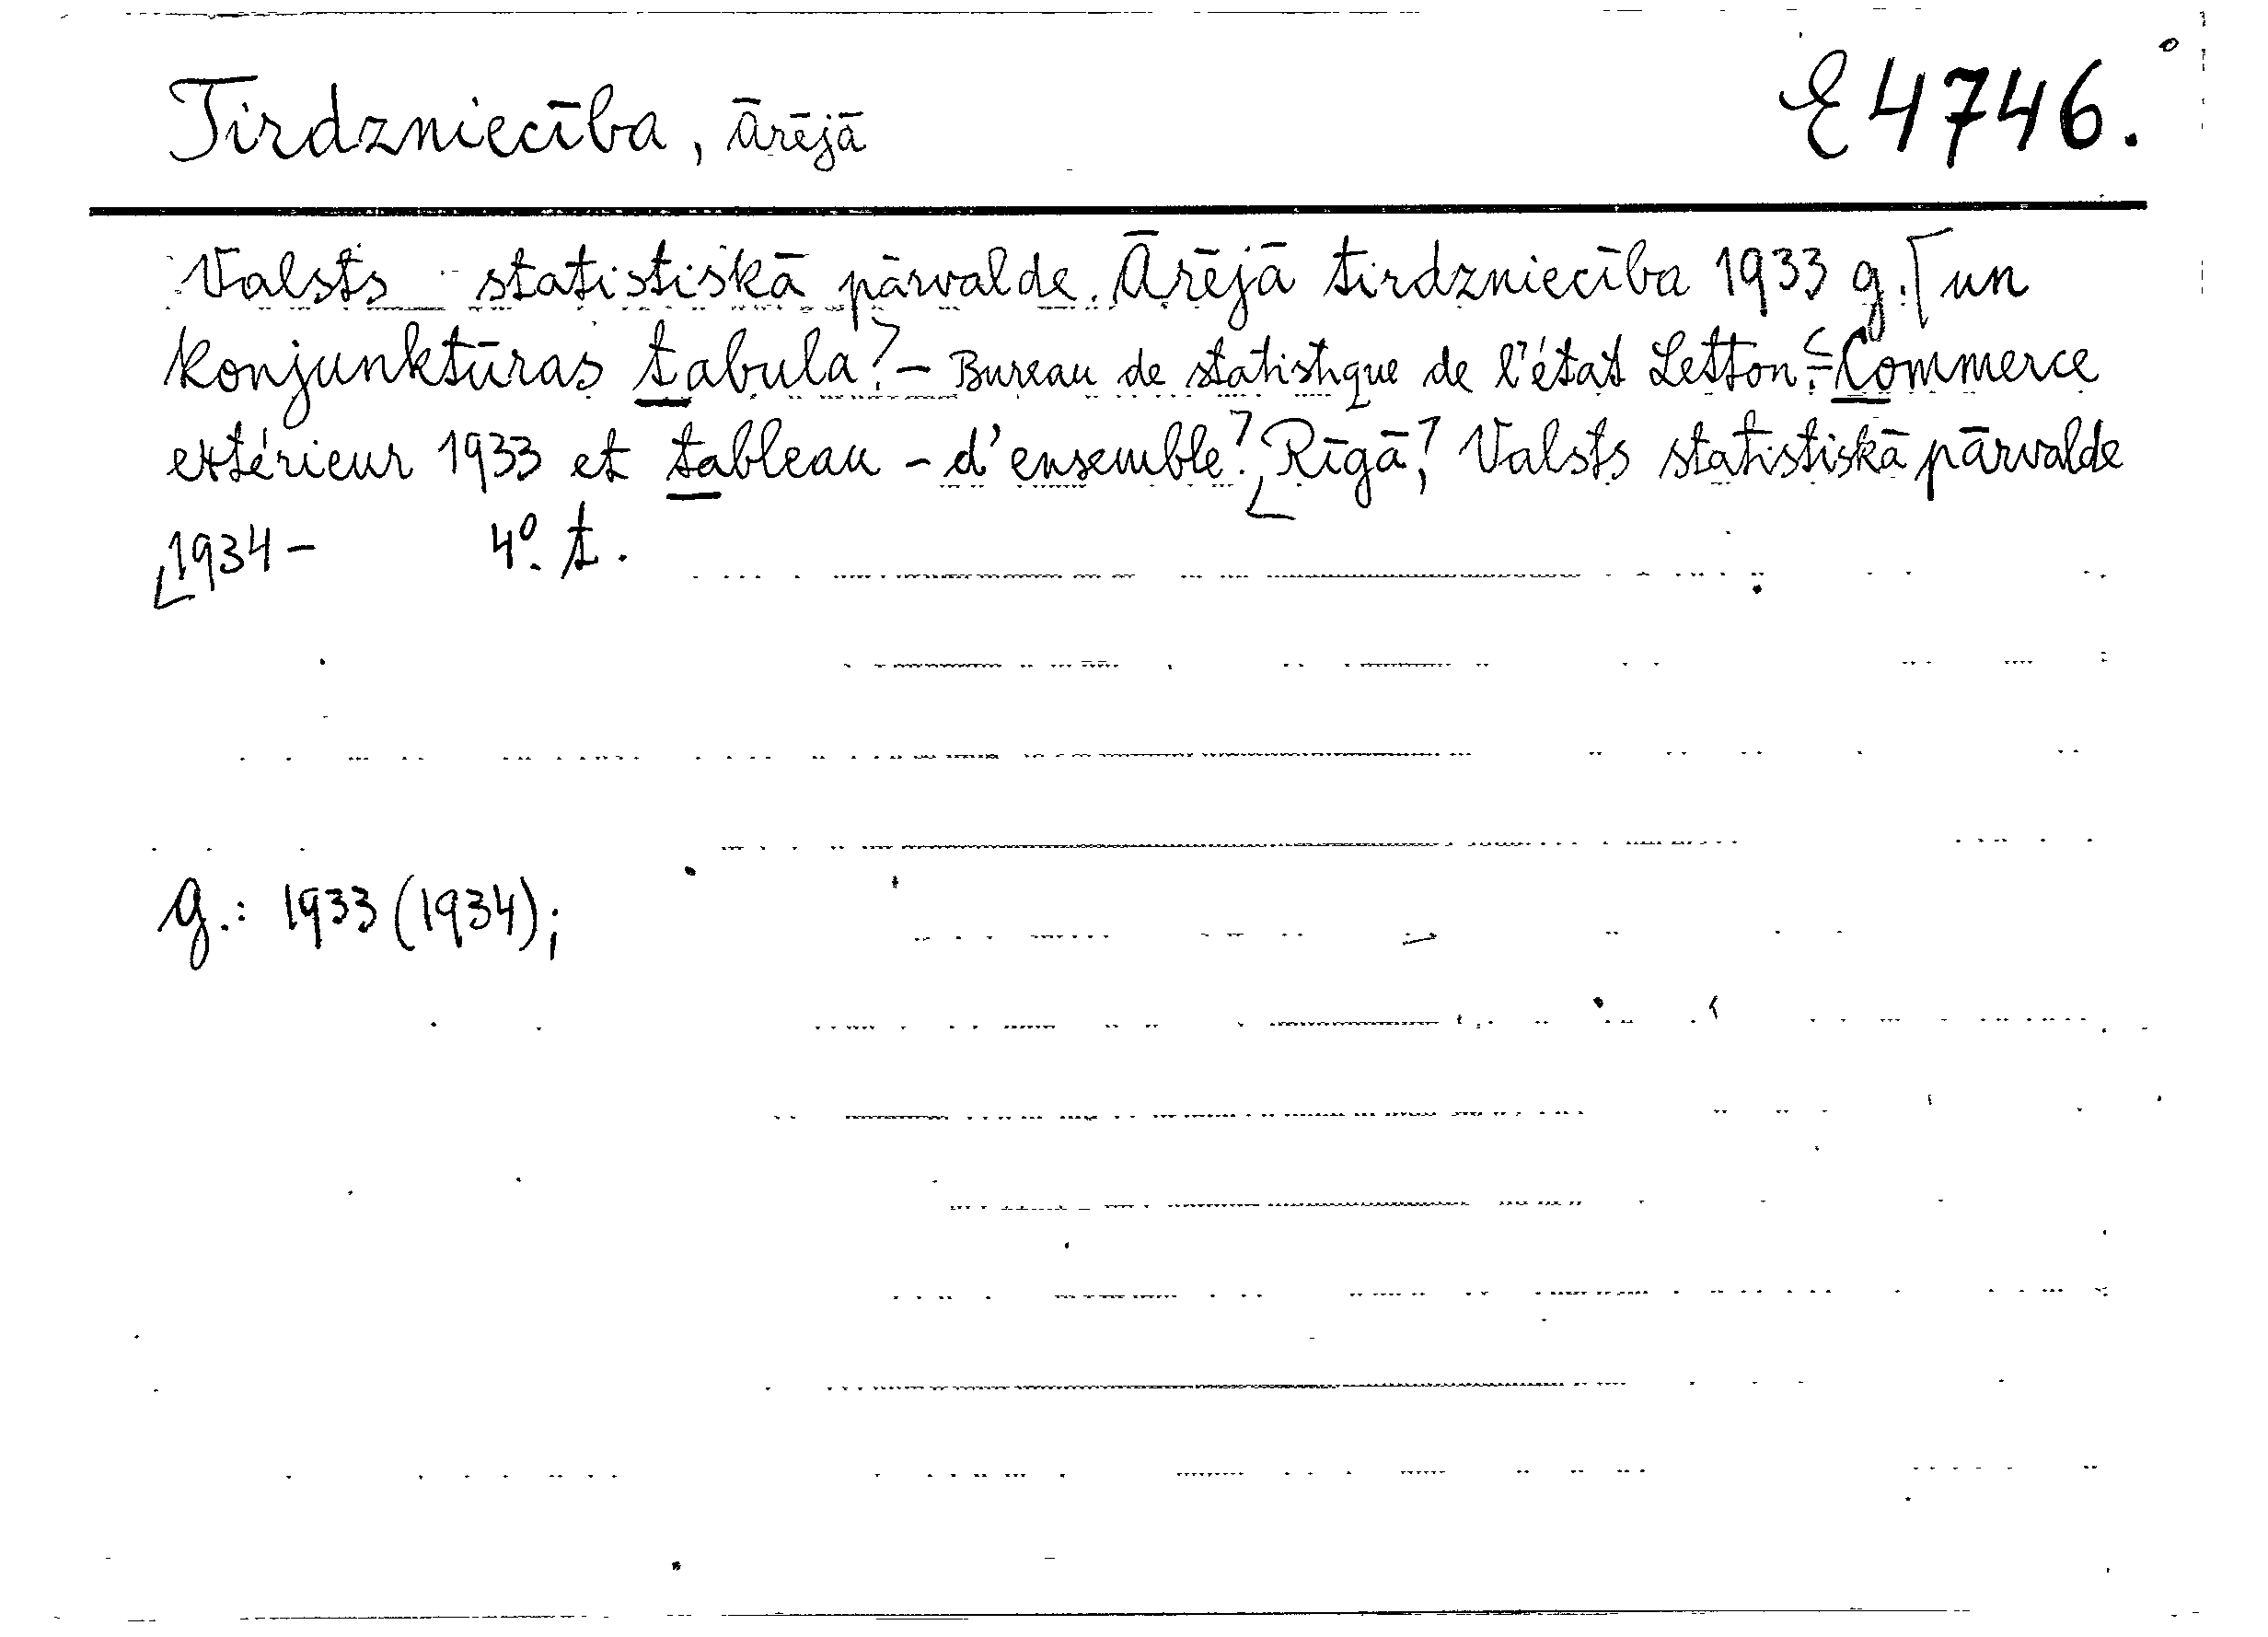 Tirdzniecība, Ārējā E 4746.
Valsts statistiskā pārvalde. Ārējā tirdzniecība 1933 g. [un
konjunktūras tabula]. – Bureau de statistique de l'état Letton. – Commerce
extérieur 1933 et tableau - d'ensemble]. [Rīgā], Valsts statistiskā pārvalde
[1934 – 4º. t.
g.: 1933 (1934);